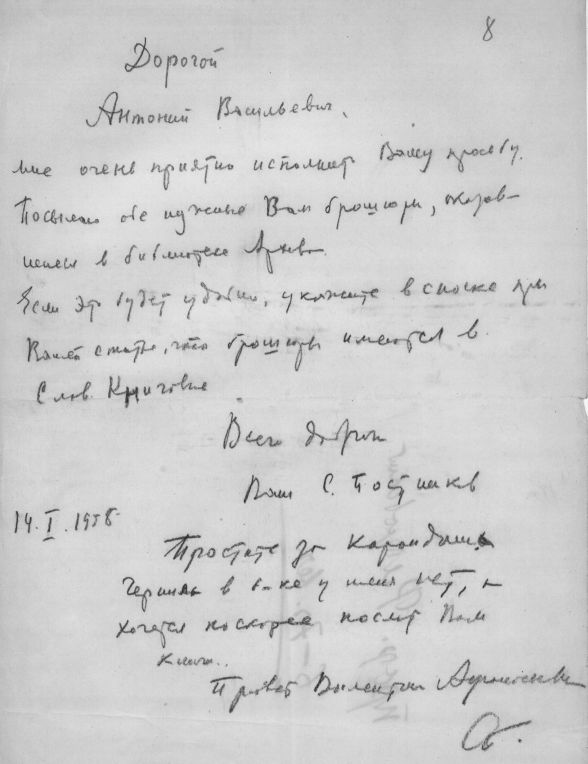 8
Дорогой
Антоний Васильевич,
мне очень приятно исполнить Вашу просьбу.
Посылаю обе нужные Вам брошюры, оказав-
шиеся в библиотеке
Если это будет удобно, укажите в сноске при
Вашей статье, что брошюры имеются в
Слав.
Всего доброго
Ваш С. Постников
14.I.1958
Простите за карандаш.
Чернил в у меня нет, а
хочется поскорее послать Вам
книги.
Привет Валентине